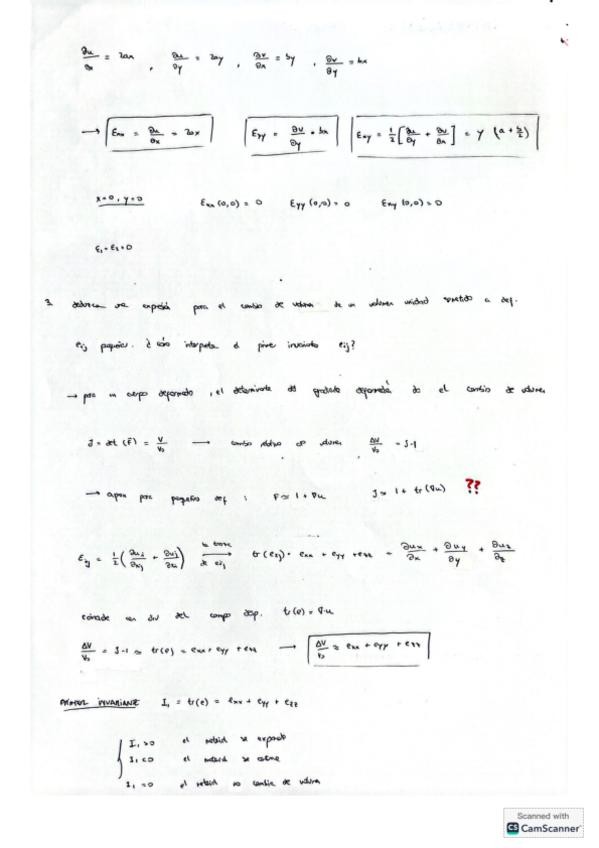 ∂u/∂x = 2ax , ∂u/∂y = 2ay , ∂v/∂x = by , ∂v/∂y = bx
→ Exx = ∂u/∂x = 2ax Eyy = ∂v/∂y = bx Exy = 1/2 [∂u/∂y + ∂v/∂x] = y (a + b/2)
x=0, y=0 Exx (0,0) = 0 Eyy (0,0) = 0 Exy (0,0) = 0
E1 = E2 = 0
3. para el cambio de volumen de un volumen unidad sometido a def.
eij pequeñas. ¿ cómo interpreta el primer invariante eij?
→ para un cuerpo deformado, el determinante del gradiente deformación da el cambio de volumen
J = det (F) = V/V0 → cambio relativo de volumen ΔV/V0 = J-1
→ para pequeñas def : F ≈ 1 + ∇u J ≈ 1 + tr (∇u) ??
Eij = 1/2 (∂ui/∂xj + ∂uj/∂xi) la traza de eij → tr (eij) = exx + eyy + ezz = ∂ux/∂x + ∂uy/∂y + ∂uz/∂z
coincide con div del campo desp. tr(e) = ∇·u
ΔV/V0 = J-1 ≈ tr(e) = exx + eyy + ezz → ΔV/V0 ≈ exx + eyy + ezz
PRIMER INVARIANTE I1 = tr(e) = exx + eyy + ezz
I1 >0 el material se expande
I1 <0 el material se
I1 =0 el material no cambia de volumen
Scanned with
CS CamScanner